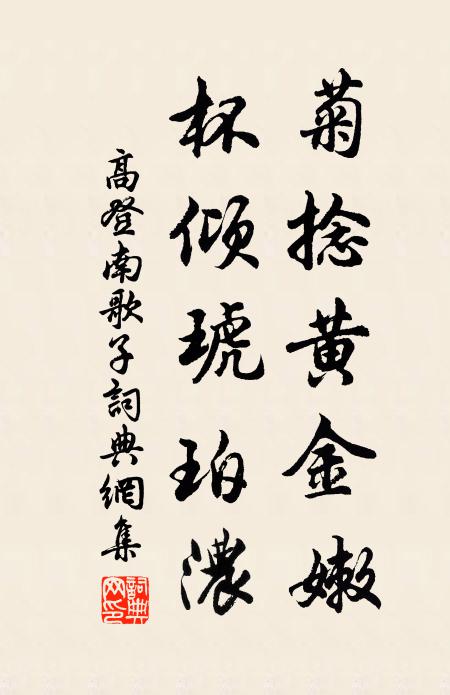 菊捻黄金嫩
杯倾琥珀濃
高登南歌子詞典網集
詞典网印